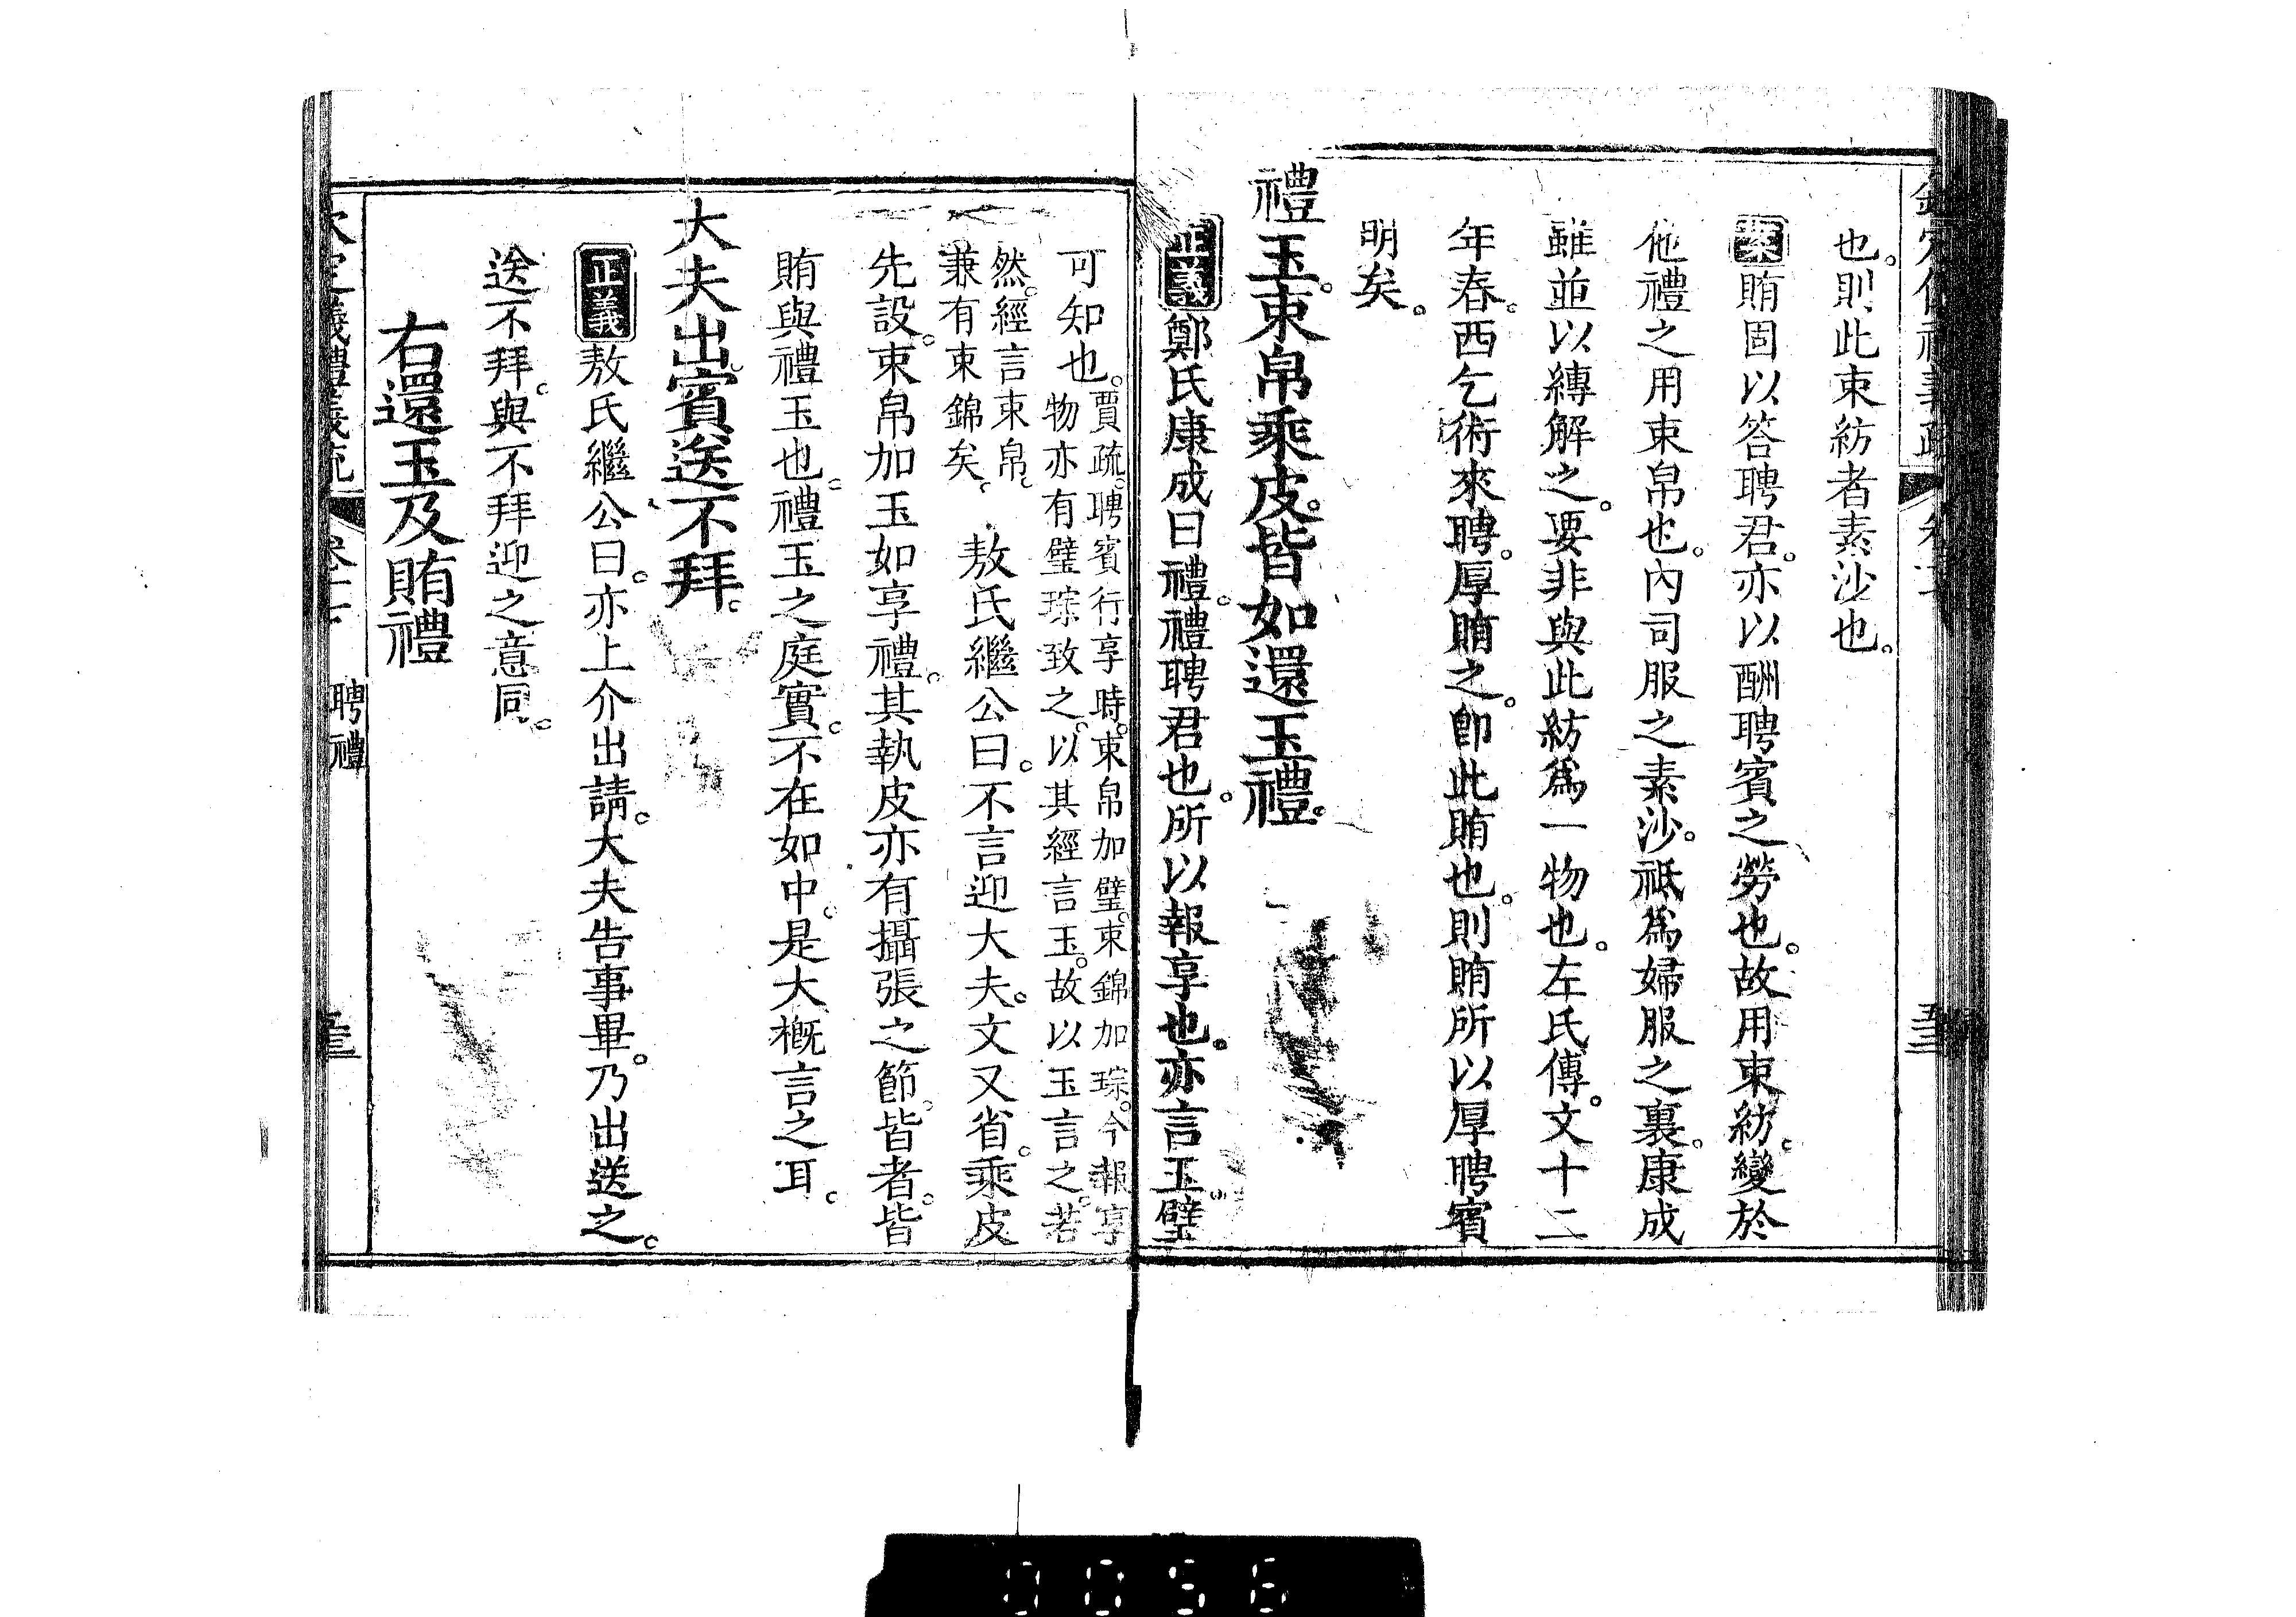 也。則此束紡者素沙也。
案賄固以答聘君。亦以酬聘賓之勞也。故用束紡。變於
他禮之用束帛也。內司服之素沙。祗爲婦服之裏。康成
雖並以縳解之。要非與此紡爲一物也。左氏傳。文十二
年春。西乞術來聘。厚賄之。卽此賄也。則賄所以厚聘賓
明矣。
禮玉。束帛乘皮。皆如還玉禮。
正義鄭氏康成曰禮。禮聘君也。所以報享也。亦言玉璧
可知也。賈疏。聘賓行享時。束帛加璧。束錦加琮。今報享
物亦有璧琮致之。以其經言玉。故以玉言之。若
然。經言束帛。
兼有束錦矣。
敖氏繼公曰。不言迎大夫。文又省。乘皮
先設。束帛加玉如享禮。其執皮亦有攝張之節。皆者。皆
賄與禮玉也。禮玉之庭實。不在如中。是大槪言之耳。
大夫出。賓送不拜。
正義敖氏繼公曰。亦上介出請。大夫告事畢。乃出送之。
送不拜。與不拜迎之意同。
右還玉及賄禮
聘禮
0056